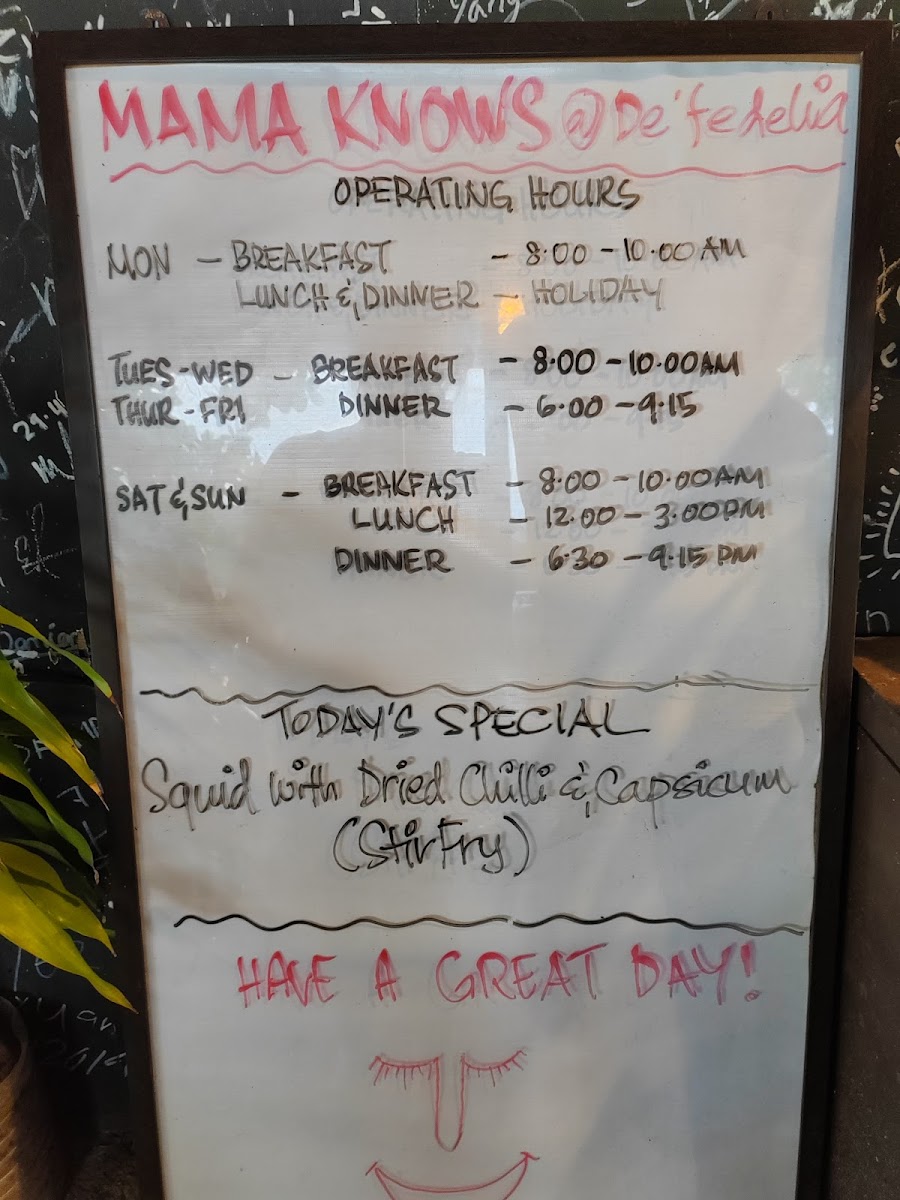 MAMA KNOWS @ De'fehelia
OPERATING HOURS
MON - BREAKFAST - 8:00 - 10.00 AM
LUNCH & DINNER - HOLIDAY
TUES-WED - BREAKFAST - 8:00 - 10.00AM
THUR-FRI DINNER - 6.00 - 9.15
SAT & SUN - BREAKFAST - 8:00 - 10.00AM
LUNCH - 12.00 - 3.00PM
DINNER - 6.30 - 9.15 PM
TODAY'S SPECIAL
Squid with Dried Chilli & Capsicum
(Stir Fry)
HAVE A GREAT DAY!